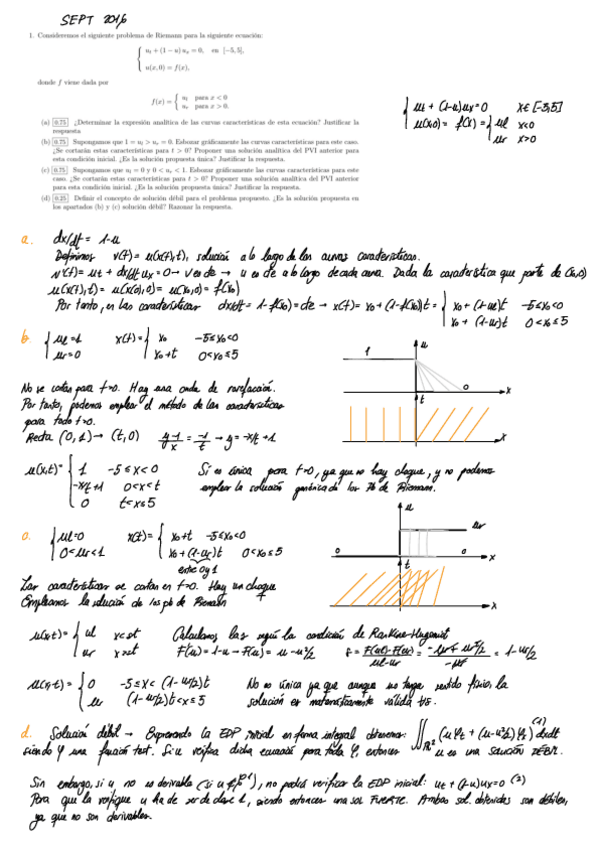 SEPT 2016
1. Consideremos el siguiente problema de Riemann para la siguiente ecuación:
u_t + (1 − u) u_x = 0, en [−5, 5],
u(x, 0) = f(x),
donde f viene dada por
f(x) = { u_l para x < 0
u_r para x > 0.
(a) 0.75 ¿Determinar la expresión analítica de las curvas características de esta ecuación? Justificar la
respuesta
(b) 0.75 Supongamos que 1 = u_l > u_r = 0. Esbozar gráficamente las curvas características para este caso.
¿Se cortarán estas características para t > 0? Proponer una solución analítica del PVI anterior para
esta condición inicial. ¿Es la solución propuesta única? Justificar la respuesta.
(c) 0.75 Supongamos que u_l = 0 y 0 < u_r < 1. Esbozar gráficamente las curvas características para este
caso. ¿Se cortarán estas características para t > 0? Proponer una solución analítica del PVI anterior
para esta condición inicial. ¿Es la solución propuesta única? Justificar la respuesta.
(d) 0.25 Definir el concepto de solución débil para el problema propuesto. ¿Es la solución propuesta en
los apartados (b) y (c) solución débil? Razonar la respuesta.
ut + (1-u)ux = 0 x∈[-5,5]
u(x,0) = f(x) = { ul x<0
ur x>0
a. dx/dt = 1-u
Definimos v(t) = u(x(t),t), solución a lo largo de las curvas características.
v'(t) = ut + dx/dt ux = 0 → v es cte → u es cte a lo largo de cada curva. Dada la característica que parte de (x0,0)
u(x(t),t) = u(x(0),0) = u(x0,0) = f(x0)
Por tanto, en las características dx/dt = 1-f(x0) = cte → x(t) = x0 + (1-f(x0))t = { x0 + (1-ul)t -5≤x0<0
x0 + (1-ur)t 0<x0≤5
b. { ul=1 x(t) = { x0 -5≤x0<0
ur=0 x0+t 0<x0≤5
No se cortan para t>0. Hay una onda de rarefacción.
Por tanto, podemos emplear el método de las características
para todo t>0.
Recta (0,1) → (t,0) y-1/x = -1/t → y = -x/t + 1
u(x,t) = { 1 -5≤x<0
-x/t+1 0<x<t
0 t<x≤5
Sí es única para t>0, ya que no hay choque, y no podemos
emplear la solución genérica de los Pb de Riemann.
1 u 0 x
t x
{ ul=0 x(t) = { x0+t -5≤x0<0
0<ur<1 x0+(1-ur)t 0<x0≤5
entre 0 y 1
Las características se cortan en t>0. Hay un choque
Empleamos la solución de los pb de Riemann
u ur 0 0 x
t x
u(x,t) = { ul x<st
ur x>st
Calculamos la s según la condición de Rankine-Hugoniot
F'(u) = 1-u → F(u) = u-u²/2 s = F(ul)-F(ur)/ul-ur = = 1-ur/2
u(x,t) = { 0 -5≤x<(1-ur/2)t
ur (1-ur/2)t<x≤5
No es única ya que aunque no tenga sentido físico, la
solución es matemáticamente válida
d. Solución débil → Expresando la EDP inicial en forma integral obtenemos: ∬ℝ² (uφt + (u-u²/2)φx) dxdt (1)
siendo φ una función test. Si u verifica dicha ecuación para toda φ, entonces u es una SOLUCIÓN DÉBIL.
Sin embargo, si u no es derivable (si u∉C¹), no podrá verificar la EDP inicial: ut + (1-u)ux=0 (2)
Para que la verifique u ha de ser de clase 1, siendo entonces una sol FUERTE. Ambas sol. obtenidas son débiles,
ya que no son derivables.